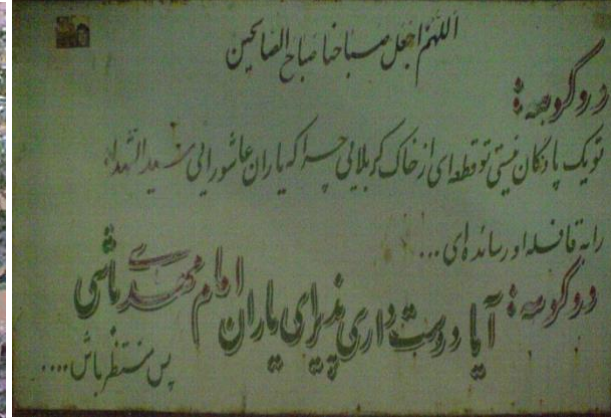 اللهم اجعل صباحنا صباح الصالحین
دوکوهه:
تو یک پادگان نیستی تو قطعه ای از خاک کربلایی چرا که یاران عاشورایی سیدالشهداء
را به قافله او رسانده ای...
دوکوهه: آیا دوست داری پذیرای یاران امام مهدی باشی
پس منتظر باش....